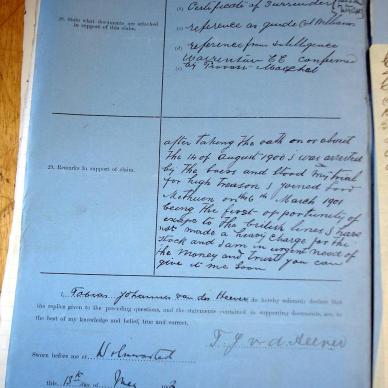 (b) Certificate of Surrender
28. State what documents are attached
in support of this claim.
(c) reference as guide Col Williams
(d) reference from Intelligence
(e)
as Provost Marshal
29. Remarks in support of claim.
after taking the oath on or about
the 14 of August 1900 I was arrested
by the boers and stood my trial
for high treason I joined Lord
Methuen on the 6th March 1901
being the first opportunity of
to the British lines I have
not made a heavy charge for the
stock and I am in urgent need of
the money and trust you can
give it me soon
I, Tobias Johannes van der Heever do hereby solemnly declare that
the replies given to the preceding questions, and the statements contained in supporting documents, are to
the best of my knowledge and belief, true and correct.
T. J. v. d. Heever
Sworn before me at
this 13th day of May 190